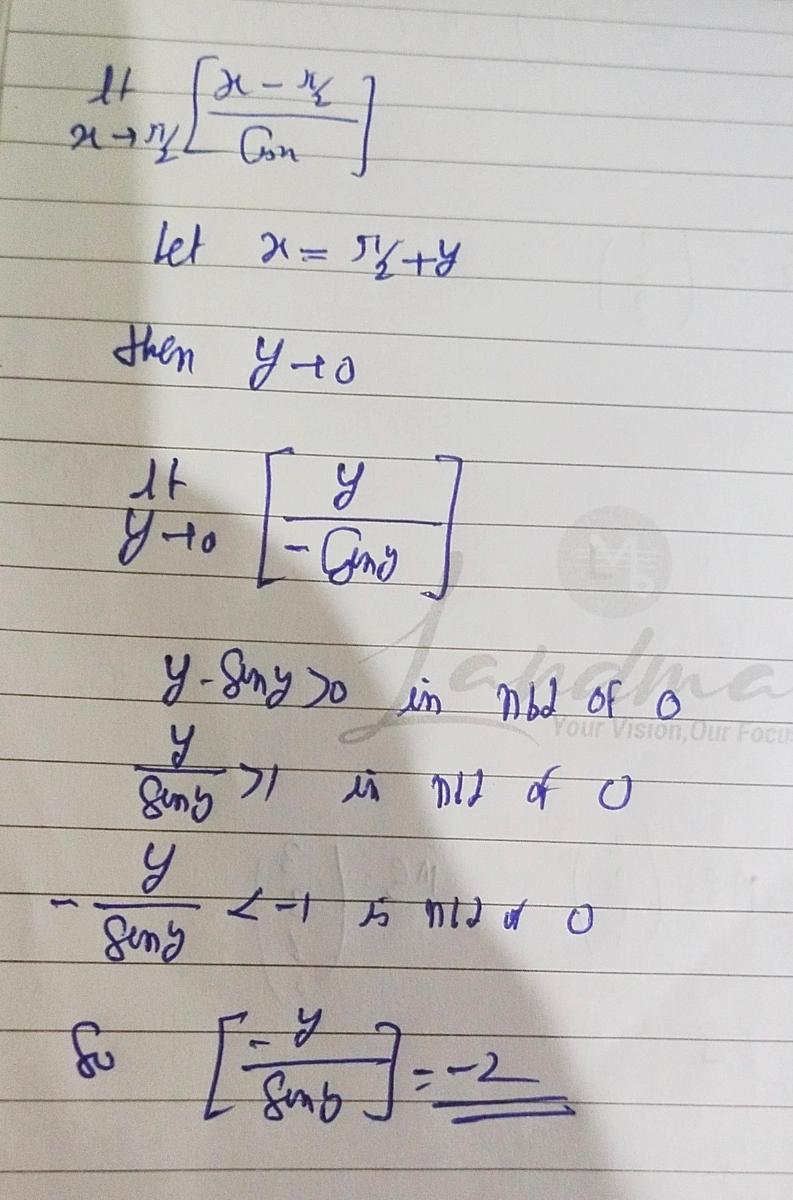 lt [x - π/2 / Cosx]
x→π/2
Let x = π/2 + y
then y→0
lt [y / - Siny]
y→0
y - Siny >0 in nbd of 0
y / Siny >1 in nbd of 0
- y / Siny < -1 is nbd of 0
So [- y / Siny] = -2
Landma
Your Vision,Our Focu